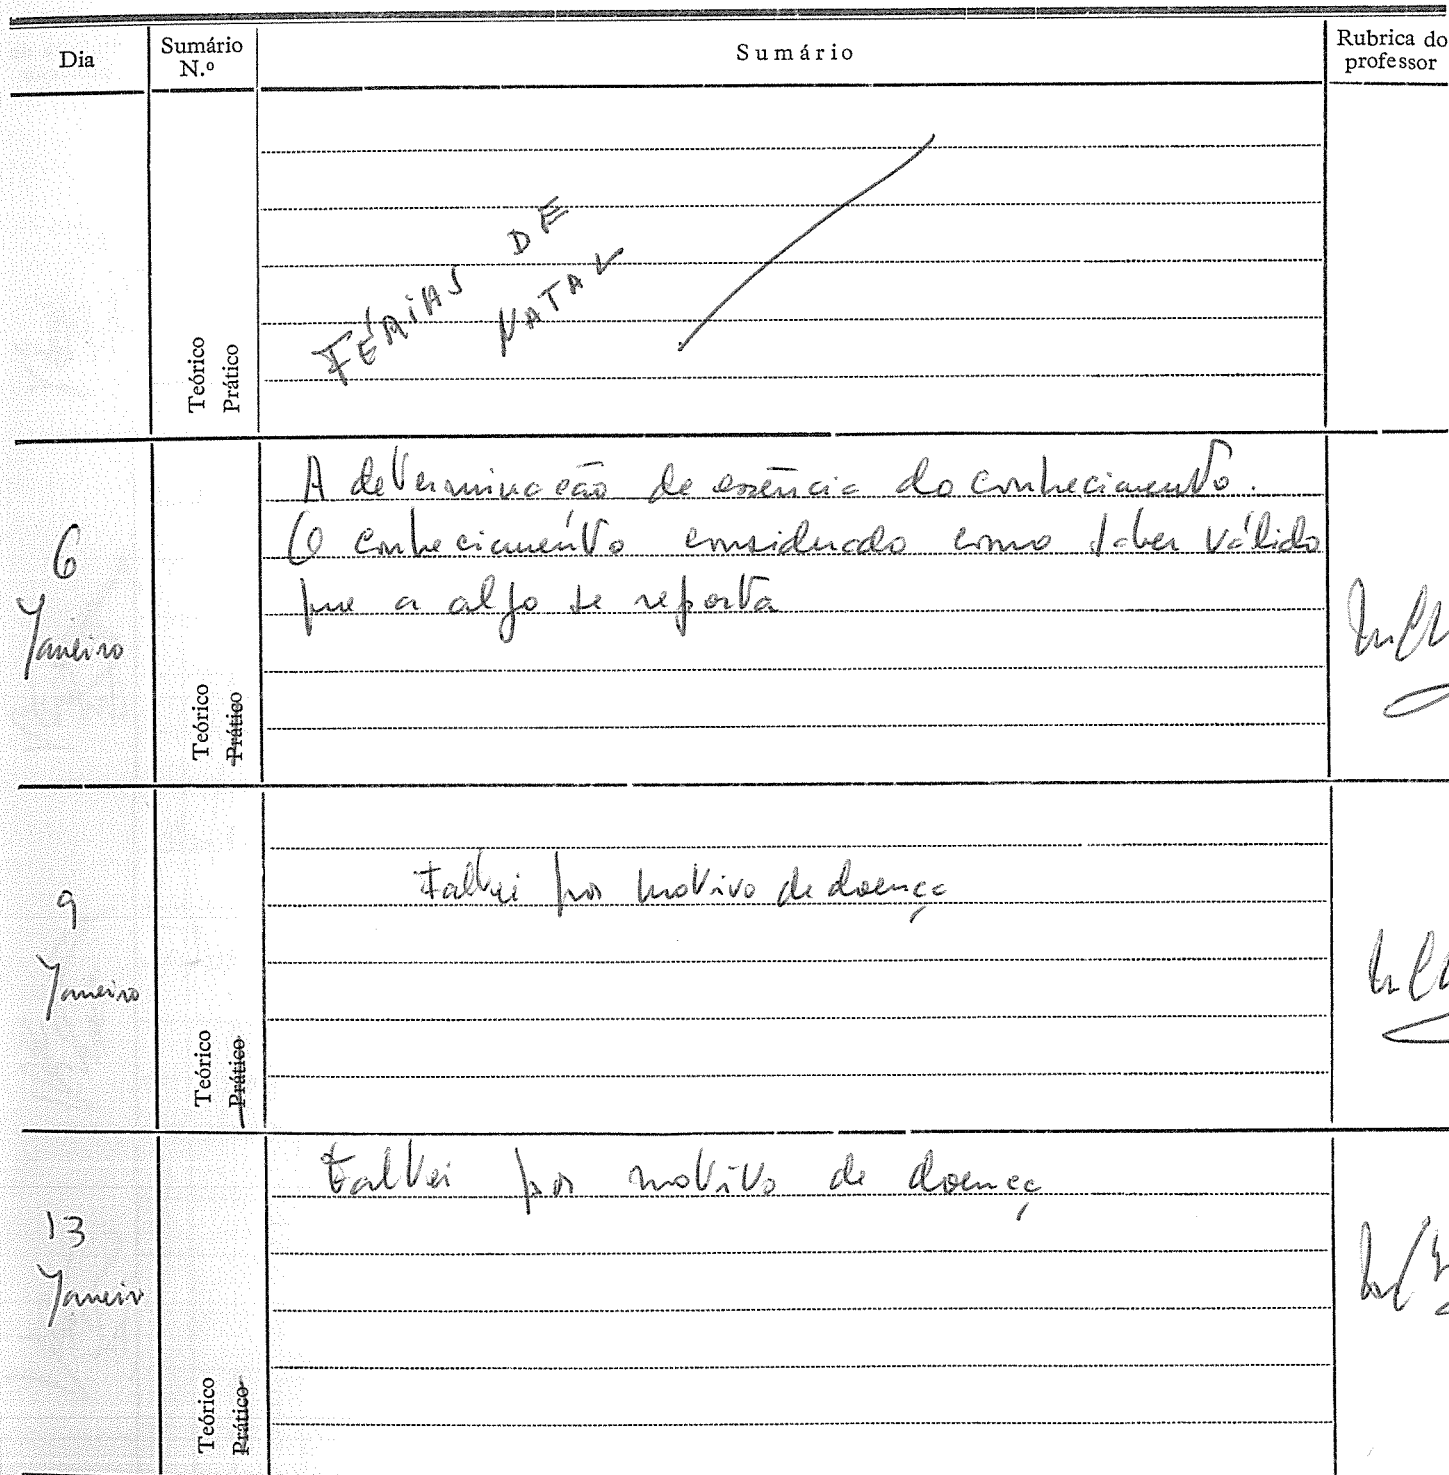 Dia
Sumário
N.º
Sumário
Rubrica do
professor
FÉRIAS DE
NATAL
Teórico
Prático
6
Janeiro
Teórico
Prático
A determinação de essência do conhecimento.
O conhecimento considerado como saber válido
que a algo se reporta
9
Janeiro
Teórico
Prático
Faltei por motivo de doença
13
Janeiro
Teórico
Prático
Faltei por motivo de doença